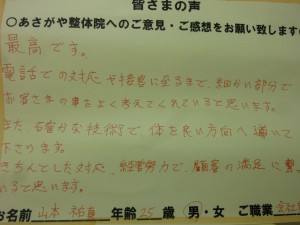 皆さまの声
○あさがや整体院へのご意見・ご感想をお願い致します
最高です。
電話での対応や接客に至るまで、細かい部分で
お客さまの事をよく考えてくれていると思います。
また、確かな技術で、体を良い方向へ導いて
下さります。
きちんとした対応、経営努力で、顧客の満足に繋
いると思います。
お名前 山本 祐真 年齢 25 歳 男・女 ご職業 会社